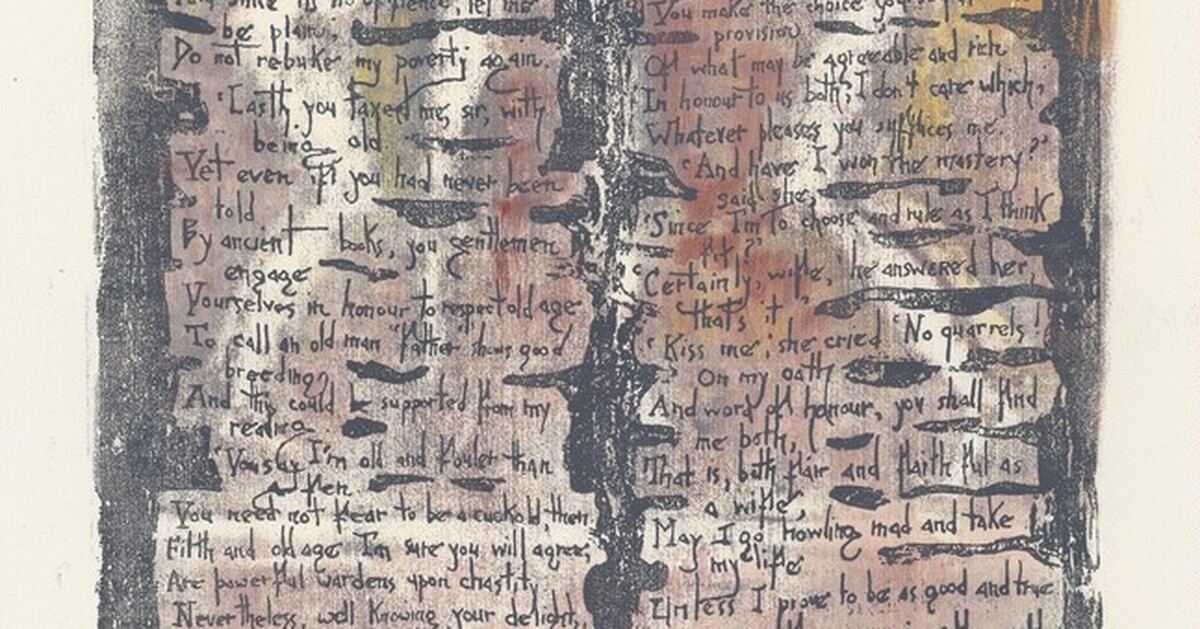 be plain,
Do not rebuke my poverty again.
'Lastly you taxed me, sir, with
being old.
Yet even if you had never been
told
By ancient books, you gentlemen
engage
Yourselves in honour to respect old age
To call an old man 'father' shows good
breeding,
And this could be supported from my
reading.
'You say I'm old and fouler than
a fen.
You need not fear to be a cuckold, then.
Filth and old age I'm sure you will agree,
Are powerful wardens upon chastity.
Nevertheless, well knowing your delight,
You make the choice yourself
provision
Of what may be agreeable and rich
In honour to us both, I don't care which;
Whatever pleases you suffices me.'
'And have I won the mastery?'
said she,
'Since I'm to choose and rule as I think
fit?'
'Certainly, wife,' he answered her,
'that's it.'
'Kiss me,' she cried 'No quarrels!
On my oath
And word of honour, you shall find
me both,
That is, both fair and faithful as
a wife;
May I go howling mad and take
my life
Unless I prove to be as good and true